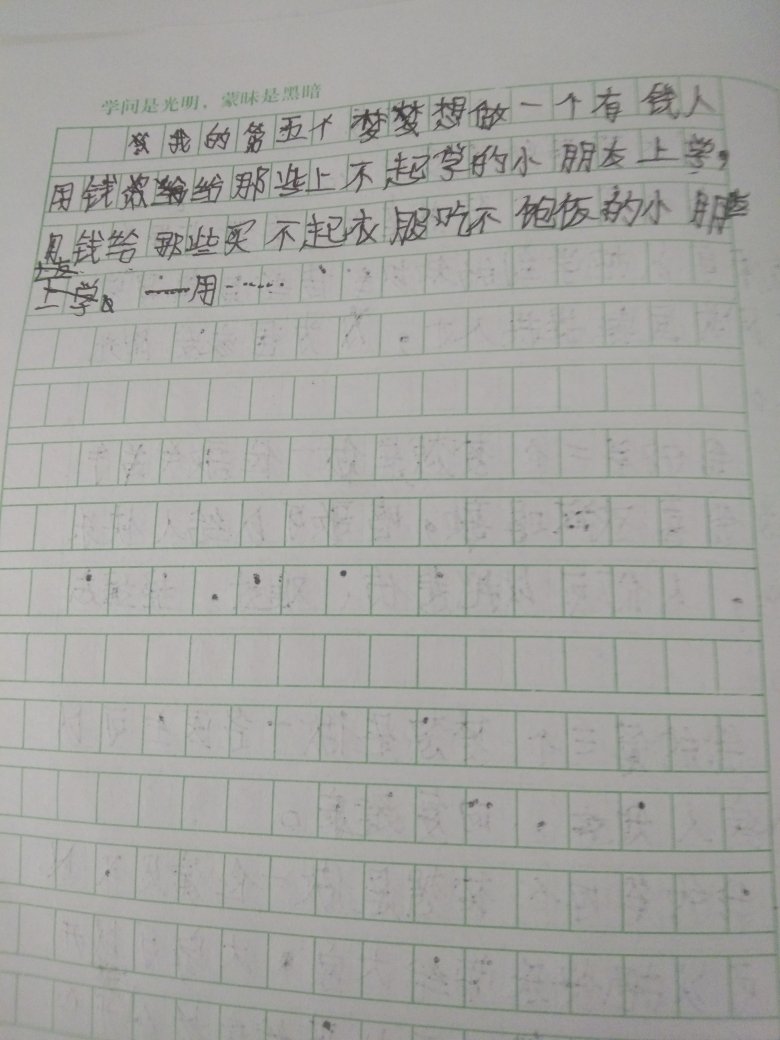 学问是光明，蒙昧是黑暗
我的第五个梦梦想做一个有钱人
用钱给给那些上不起学的小朋友上学，
用钱给那些买不起衣服吃不饱饭的小朋友
上学。一一用……